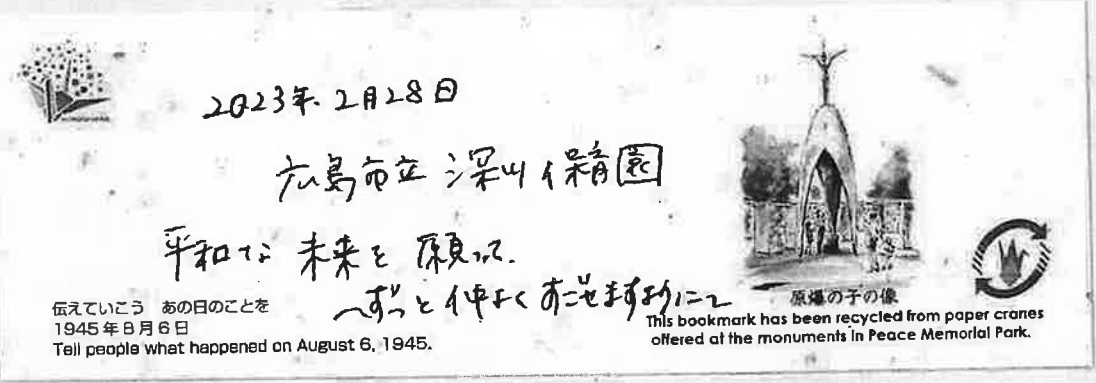 2023年.2月28日
広島市立 深川保育園
平和な 未来を 願って.
〜ずっと仲よく すごせますように〜
伝えていこう あの日のことを
1945年8月6日
Tell people what happened on August 6, 1945.
原爆の子の像
This bookmark has been recycled from paper cranes
offered at the monuments in Peace Memorial Park.